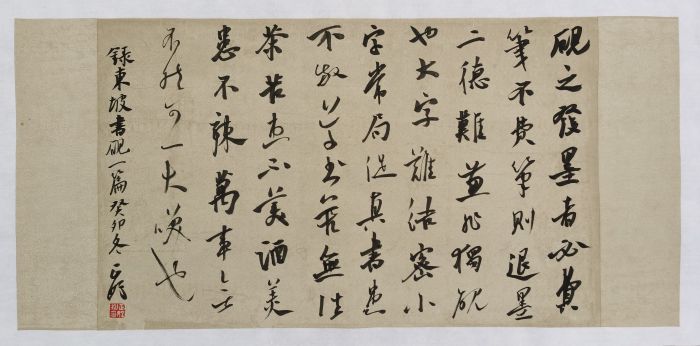 硯之發墨者必費
筆不費筆則退墨
二德難兼非獨硯
也大字難結密小
字常局促真書患
不放草書苦無法
茶苦患不美酒美
患不辣萬事無
不然可一大咲也
錄東坡書硯一篇癸卯冬